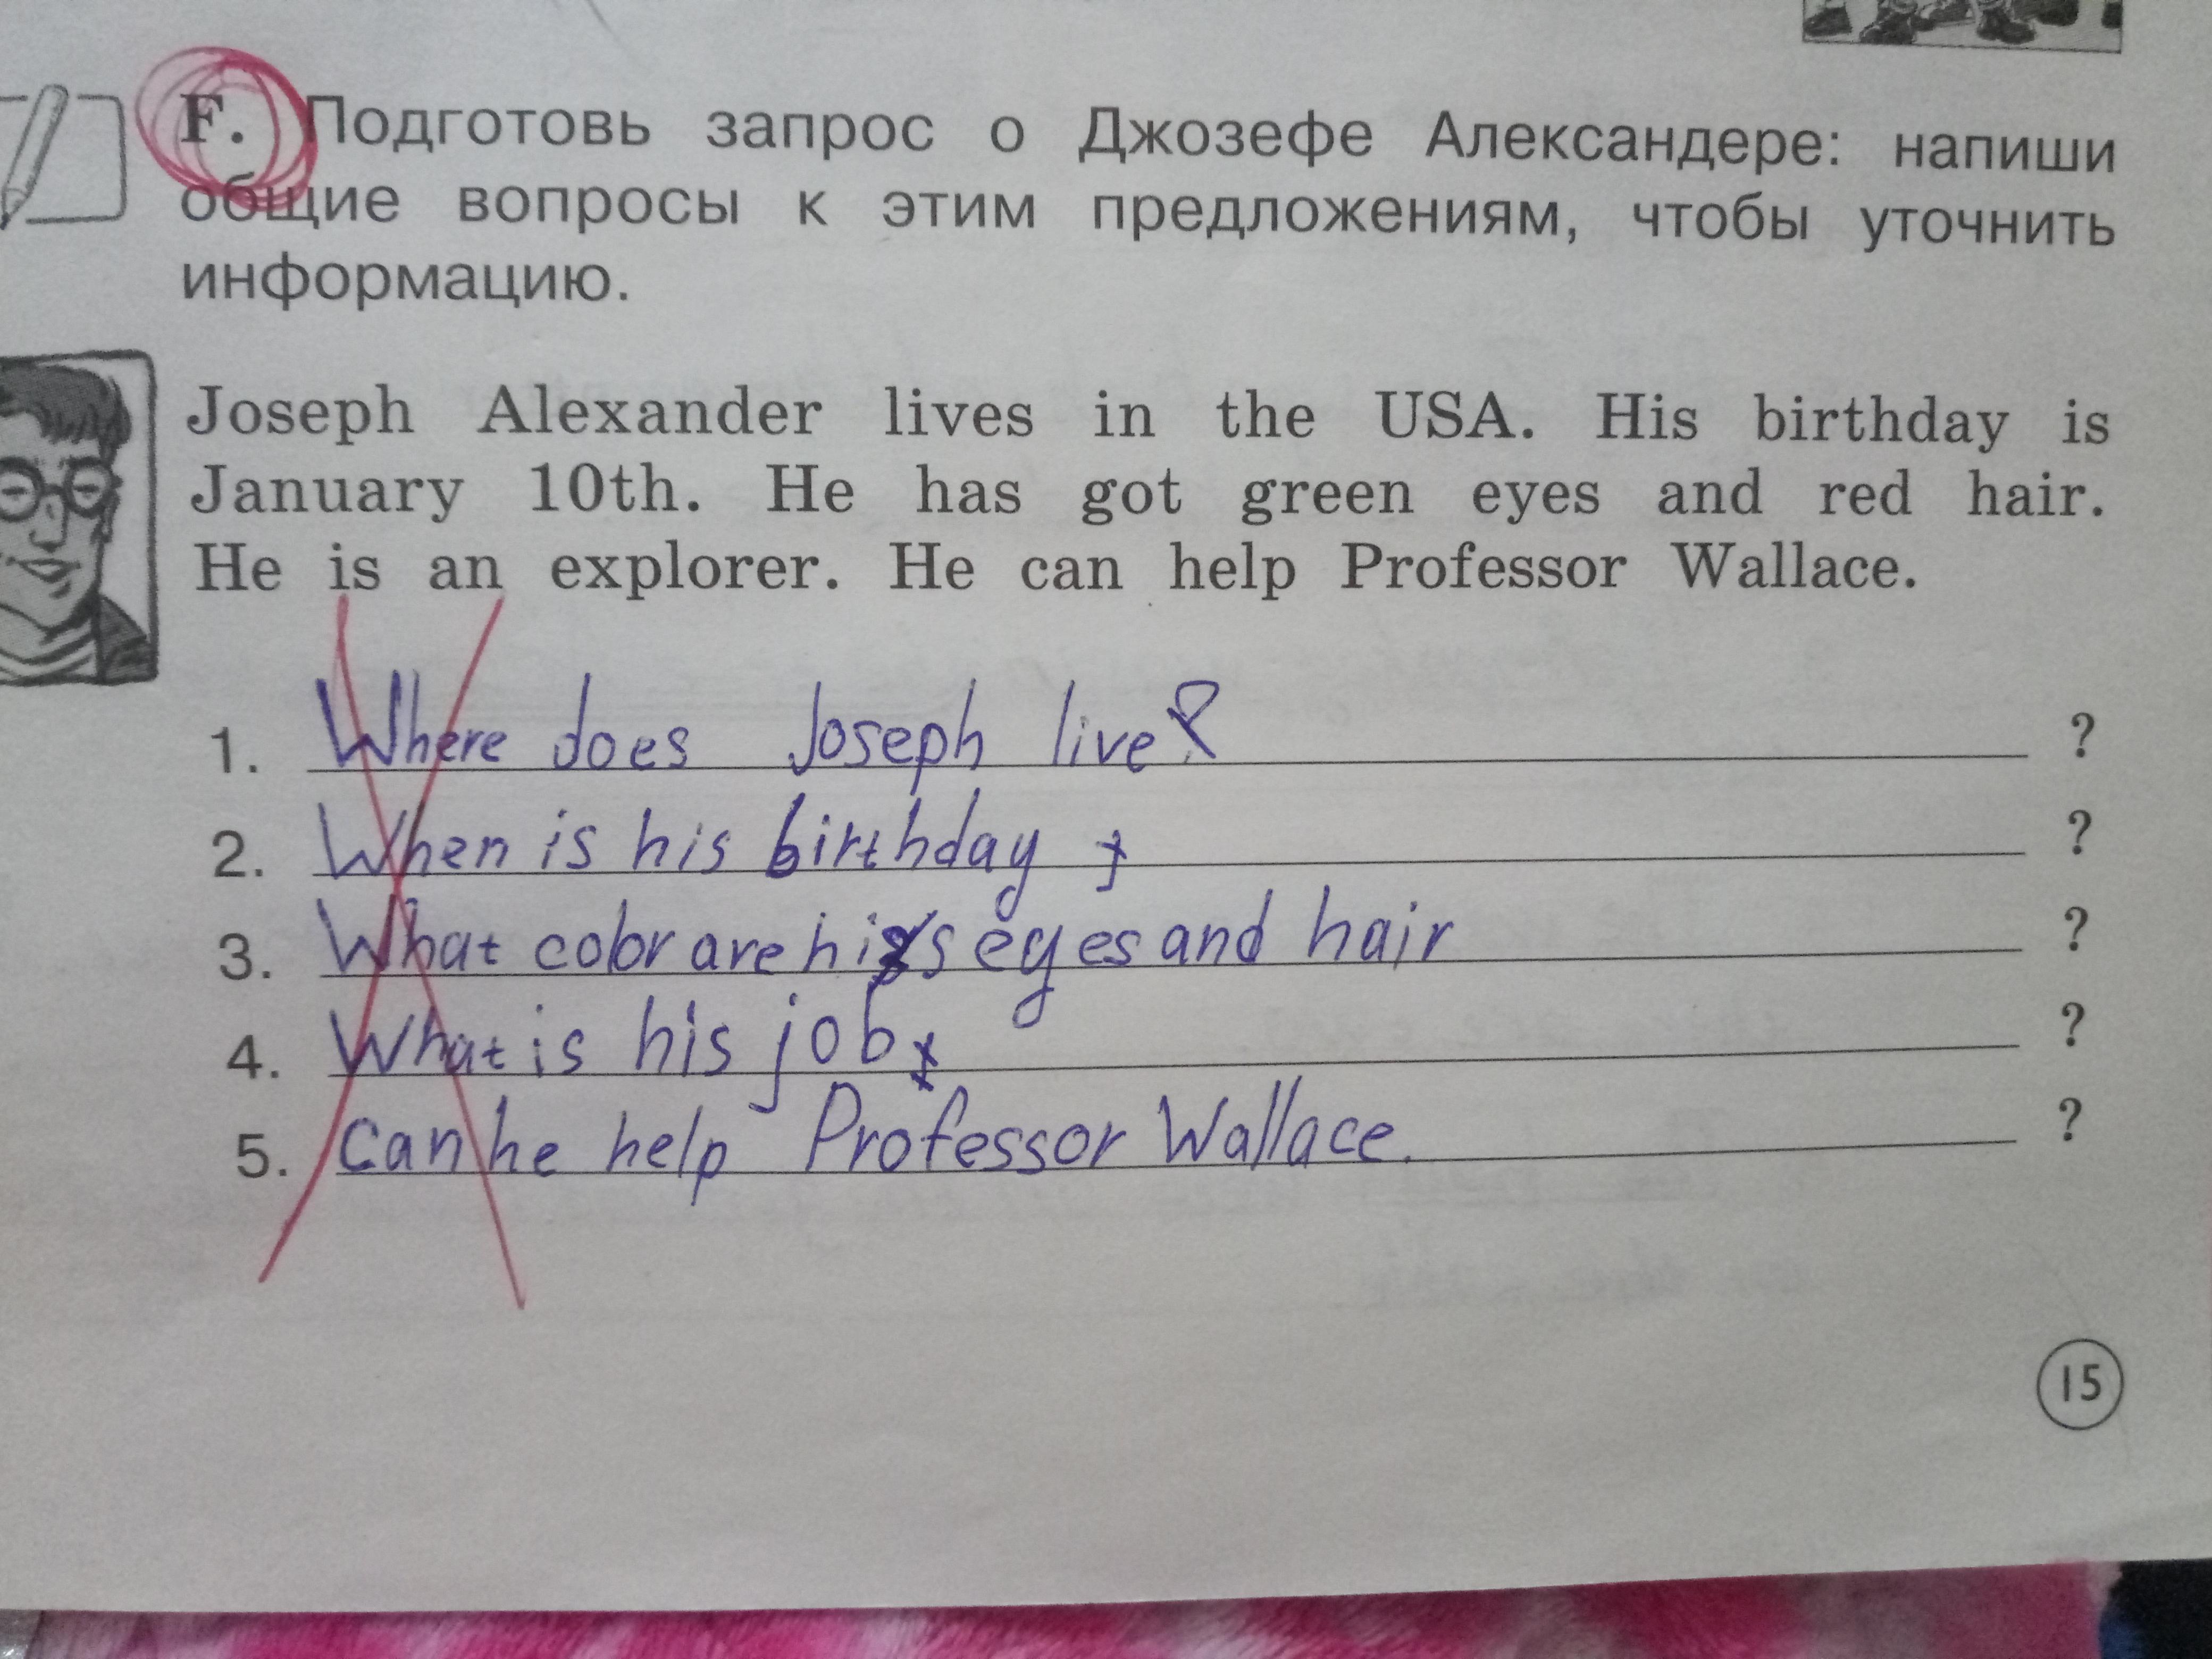 F. Подготовь запрос о Джозефе Александере: напиши
общие вопросы к этим предложениям, чтобы уточнить
информацию.
Joseph Alexander lives in the USA. His birthday is
January 10th. He has got green eyes and red hair.
He is an explorer. He can help Professor Wallace.
1. Where does Joseph live? ?
2. When is his birthday ?
3. What color are his eyes and hair ?
4. What is his job ?
5. Can he help Professor Wallace. ?
15